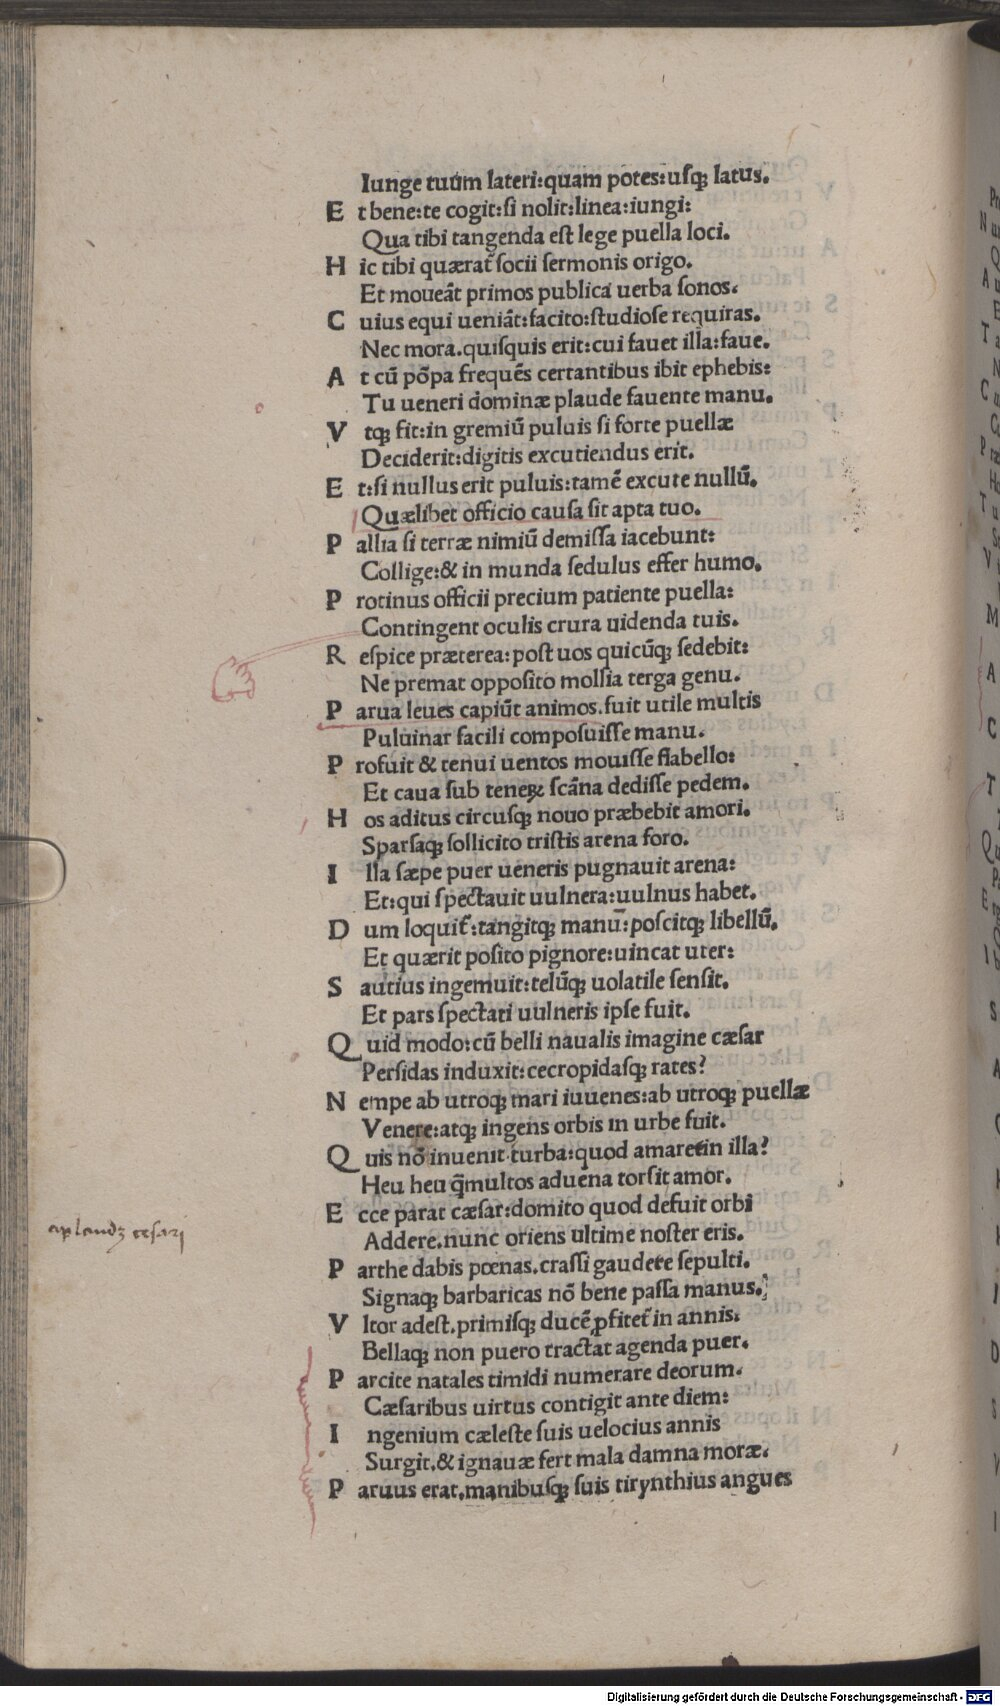 Iunge tuum lateri:quam potes:usqꝫ latus.
E t bene:te cogit:si nolit:linea:iungi:
Qua tibi tangenda est lege puella loci.
H ic tibi quærat᷑ socii sermonis origo.
Et moueãt primos publica uerba sonos.
C uius equi ueniãt:facito:studiose requiras.
Nec mora.quisquis erit:cui fauet illa:faue.
A t cũ põpa frequẽs certantibus ibit ephebis:
Tu ueneri dominæ plaude fauente manu.
V tqꝫ fit:in gremiũ puluis si forte puellæ
Deciderit:digitis excutiendus erit.
E t:si nullus erit puluis:tamẽ excute nullũ.
Quælibet officio causa sit apta tuo.
P allia si terræ nimiũ demissa iacebunt:
Collige:& in munda sedulus effer humo.
P rotinus officii precium patiente puella:
Contingent oculis crura uidenda tuis.
R espice præterea:post uos quicũqꝫ sedebit:
Ne premat opposito mollia terga genu.
P arua leues capiũt animos.fuit utile multis
Puluinar facili composuisse manu.
P rofuit & tenui uentos mouisse flabello:
Et caua sub teneꝝ scãna dedisse pedem.
H os aditus circusqꝫ nouo præbebit amori.
Sparsaqꝫ sollicito tristis arena foro.
I lla sæpe puer ueneris pugnauit arena:
Et:qui spectauit uulnera:uulnus habet.
D um loquit᷑:tangitqꝫ manũ:poscitqꝫ libellũ.
Et quærit posito pignore:uincat uter:
S autius ingemuit:telũqꝫ uolatile sensit.
Et pars spectati uulneris ipse fuit.
Q uid modo:cũ belli naualis imagine cæsar
Persidas induxit:cecropidasqꝫ rates?
N empe ab utroqꝫ mari iuuenes:ab utroqꝫ puellæ
Venere:atqꝫ ingens orbis in urbe fuit.
Q uis nõ inuenit turba:quod amaret:in illa?
Heu heu q̃multos aduena torsit amor.
E cce parat cæsar:domito quod defuit orbi
aplaudꝫ cesari
Addere.nunc oriens ultime noster eris.
P arthe dabis pœnas.crassi gaudete sepulti.
Signaqꝫ barbaricas nõ bene passa manus.
V ltor adest.primisqꝫ ducẽ ꝓfitet᷑ in annis.
Bellaqꝫ non puero tractat agenda puer.
P arcite natales timidi numerare deorum.
Cæsaribus uirtus contigit ante diem:
I ngenium cæleste suis uelocius annis
Surgit.& ignauæ fert mala damna moræ.
P aruus erat.manibusqꝫ suis tirynthius angues
Digitalisierung gefördert durch die Deutsche Forschungsgemeinschaft - DFG